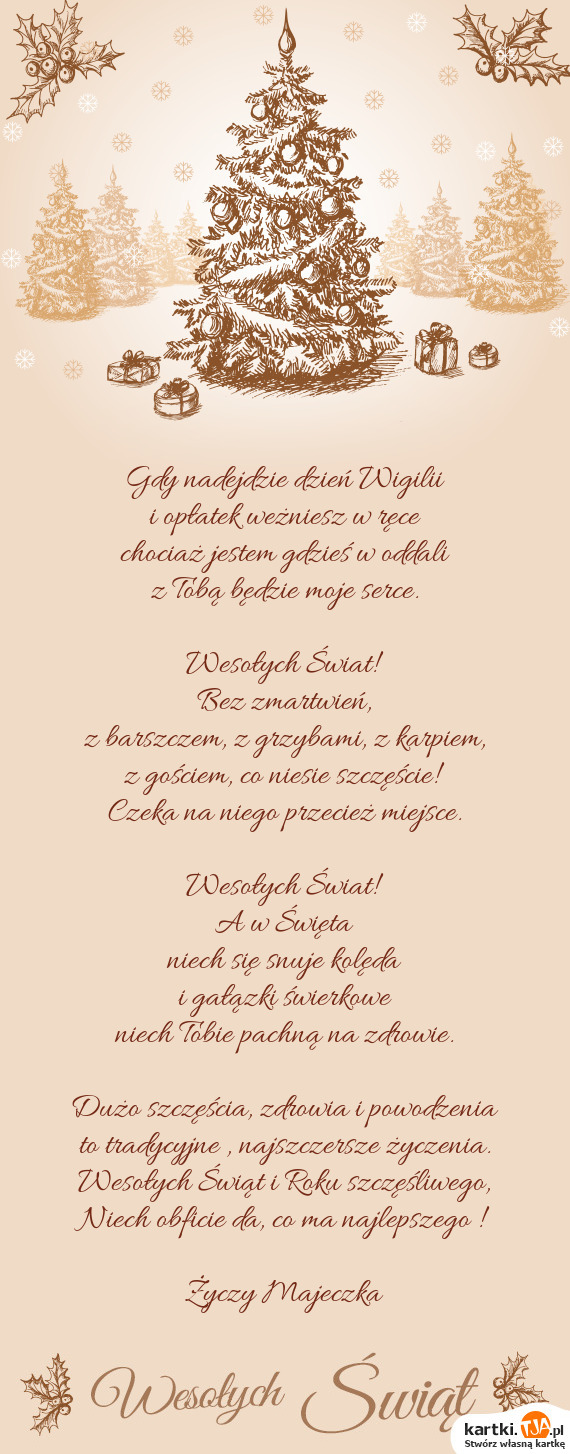 Gdy nadejdzie dzień Wigilii
i opłatek weżniesz w ręce
chociaż jestem gdzieś w oddali
z Tobą będzie moje serce.
Wesołych Świat!
Bez zmartwień,
z barszczem, z grzybami, z karpiem,
z gościem, co niesie szczęście!
Czeka na niego przecież miejsce.
Wesołych Świat!
A w Święta
niech się snuje kolęda
i gałązki świerkowe
niech Tobie pachną na zdrowie.
Dużo szczęścia, zdrowia i powodzenia
to tradycyjne , najszczersze życzenia.
Wesołych Świąt i Roku szczęśliwego,
Niech obficie da, co ma najlepszego !
Życzy Majeczka
Wesołych Świąt
kartki.TJA.pl
Stwórz własną kartkę